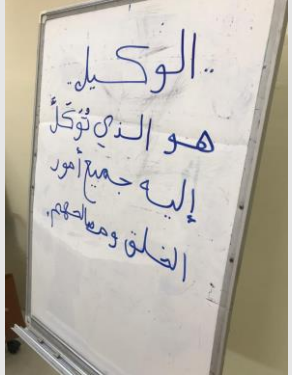 .. الوكيل ..
هو الذي تُوَكَلُ
إليه جميع أمور
الخلق ومصالحهم.